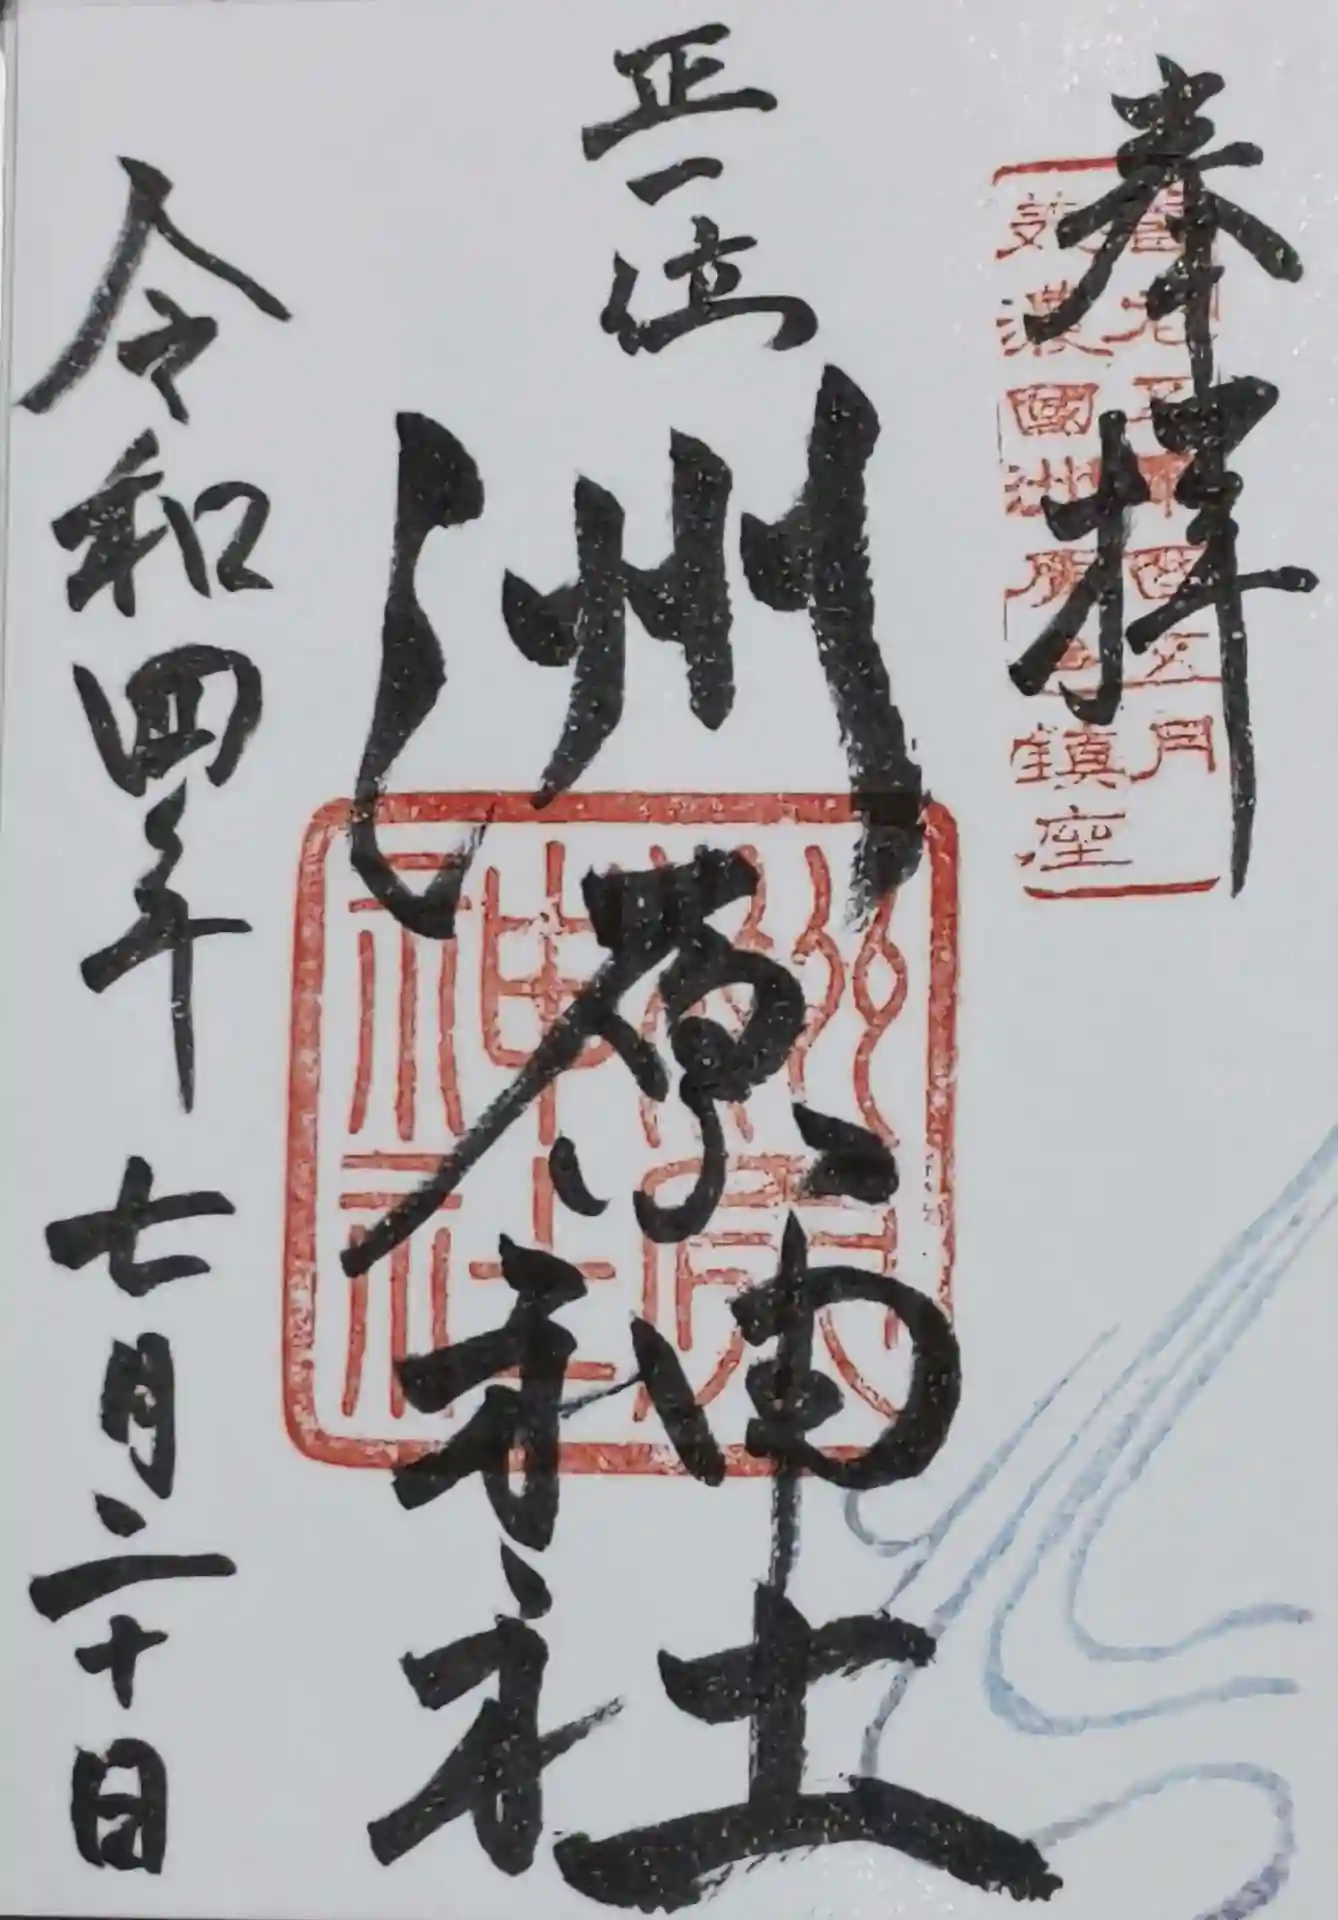 奉拝
養老五年酉五月
美濃國洲原鎮座
正一位
洲原神社
洲原神社
令和四年七月二十日